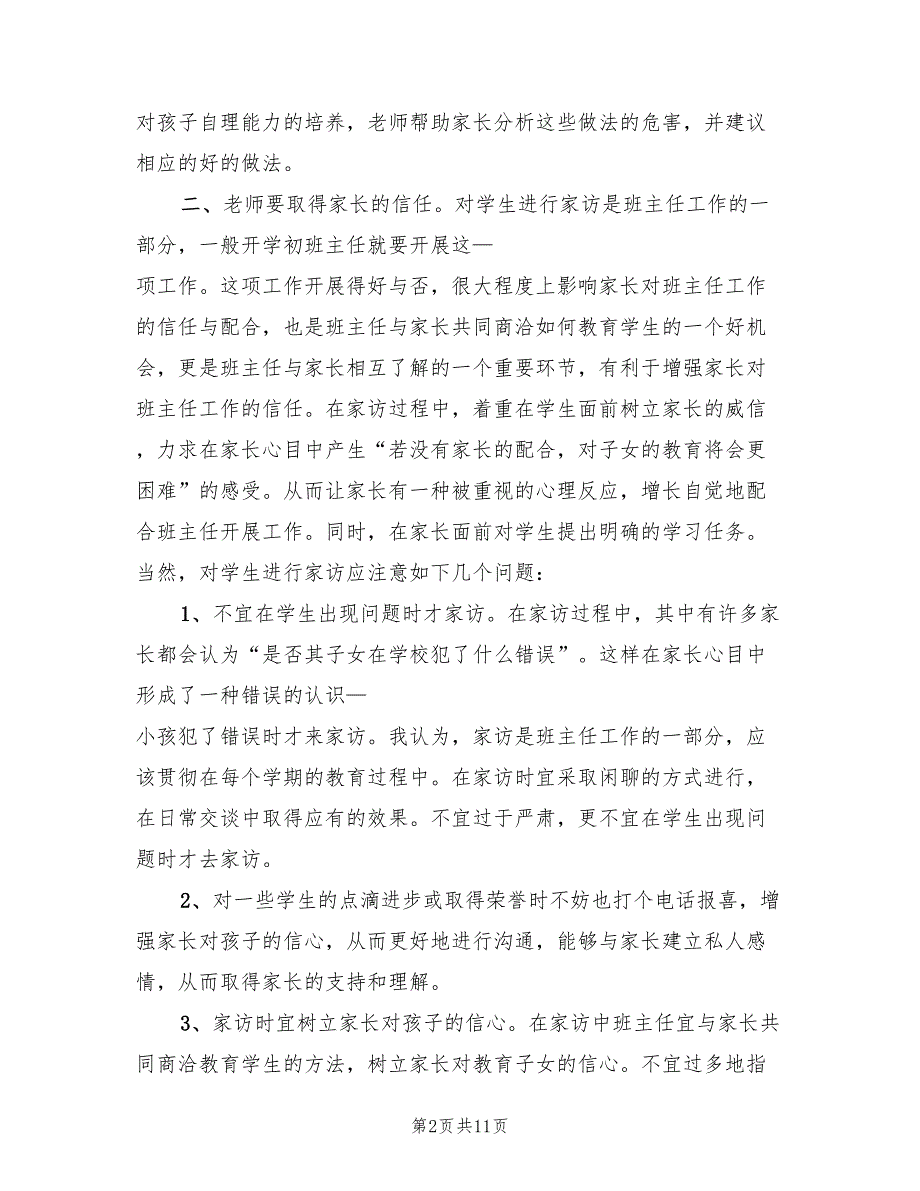 对孩子自理能力的培养，老师帮助家长分析这些做法的危害，并建议
相应的好的做法。
二、老师要取得家长的信任。对学生进行家访是班主任工作的一
部分，一般开学初班主任就要开展这—
项工作。这项工作开展得好与否，很大程度上影响家长对班主任工作
的信任与配合，也是班主任与家长共同商洽如何教育学生的一个好机
会，更是班主任与家长相互了解的一个重要环节，有利于增强家长对
班主任工作的信任。在家访过程中，着重在学生面前树立家长的威信
，力求在家长心目中产生“若没有家长的配合，对子女的教育将会更
困难”的感受。从而让家长有一种被重视的心理反应，增长自觉地配
合班主任开展工作。同时，在家长面前对学生提出明确的学习任务。
当然，对学生进行家访应注意如下几个问题：
1、不宜在学生出现问题时才家访。在家访过程中，其中有许多家
长都会认为“是否其子女在学校犯了什么错误”。这样在家长心目中
形成了一种错误的认识—
小孩犯了错误时才来家访。我认为，家访是班主任工作的一部分，应
该贯彻在每个学期的教育过程中。在家访时宜采取闲聊的方式进行，
在日常交谈中取得应有的效果。不宜过于严肃，更不宜在学生出现问
题时才去家访。
2、对一些学生的点滴进步或取得荣誉时不妨也打个电话报喜，增
强家长对孩子的信心，从而更好地进行沟通，能够与家长建立私人感
情，从而取得家长的支持和理解。
3、家访时宜树立家长对孩子的信心。在家访中班主任宜与家长共
同商洽教育学生的方法，树立家长对教育子女的信心。不宜过多地指
第2页共11页